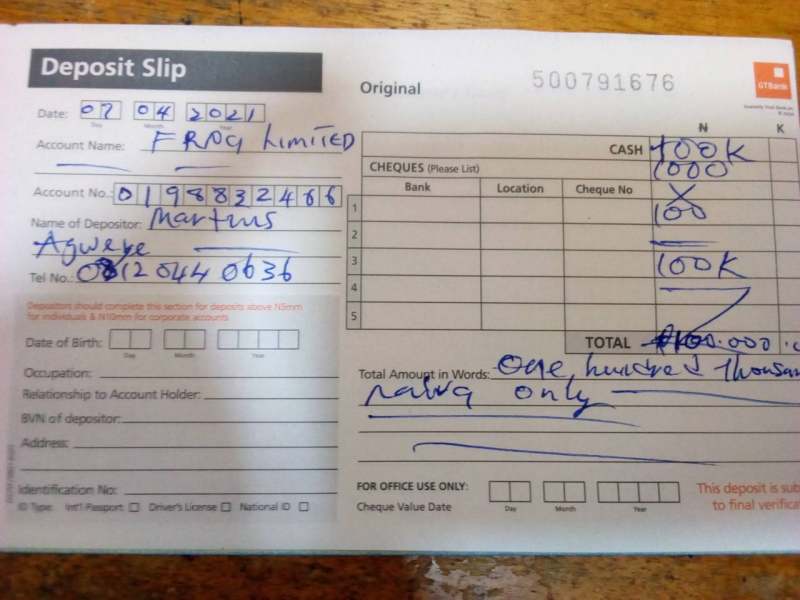 Deposit Slip
Original
500791676
GTBank
Date: 07 04 2021
Day Month Year
Account Name: FRNG LIMITED
Account No.: 0198832466
Name of Depositor: Martins
Agweye
Tel No.: 08120440636
Depositors should complete this section for deposits above N5mm
for individuals & N10mm for corporate accounts
Date of Birth:
Day Month Year
Occupation:
Relationship to Account Holder:
BVN of depositor:
Address:
Identification No:
ID Type: Int'l Passport Driver's License National ID
N K
CASH 100K
CHEQUES (Please List) 1000
Bank Location Cheque No X
1 100
2
3 100K
4
5
TOTAL 100.000
Total Amount in Words: One hundred thousan
naira only
FOR OFFICE USE ONLY:
Cheque Value Date
Day Month Year
This deposit is sub
to final verifica